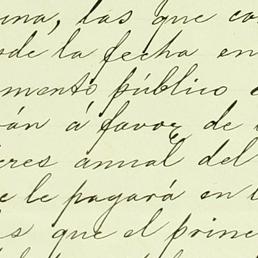 una, las que co
sde la fecha en
mento público
án á favor de
eres anual del
e le pagará en
s que el prime